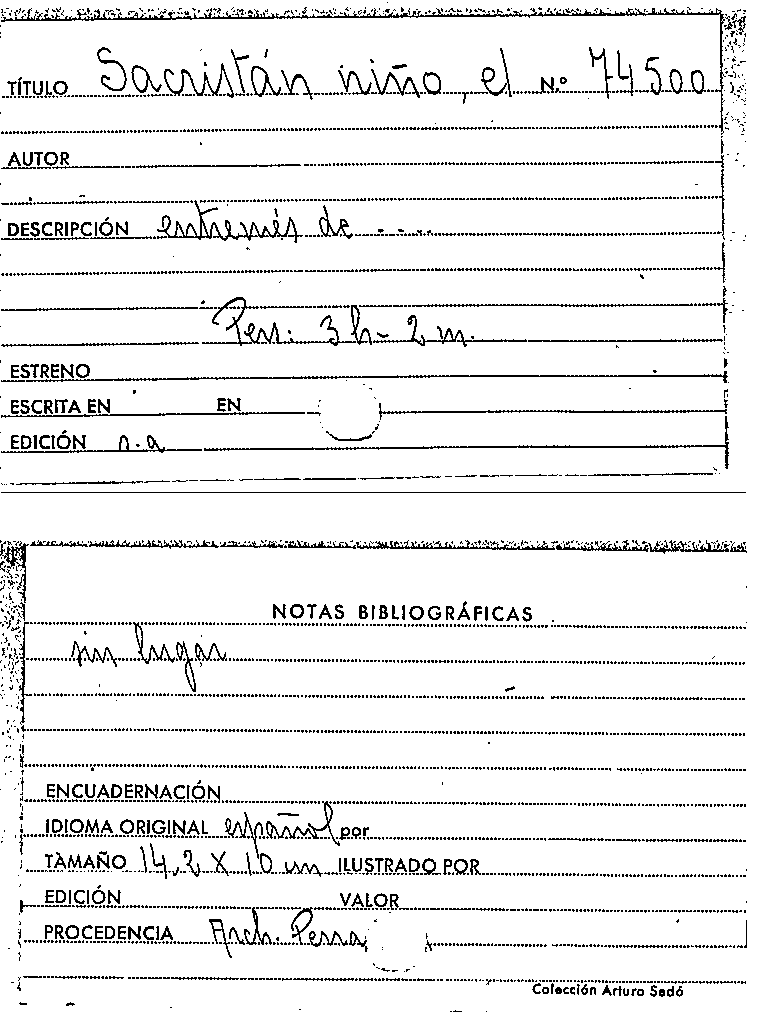 TÍTULO Sacristán niño, el N.º 74500
AUTOR
DESCRIPCIÓN entremés de ....
Pers: 3 h - 2 m.
ESTRENO
ESCRITA EN EN
EDICIÓN n.a
NOTAS BIBLIOGRÁFICAS
sin lugar
ENCUADERNACIÓN
IDIOMA ORIGINAL español por
TAMAÑO 14,2 X 10 cm ILUSTRADO POR
EDICIÓN VALOR
PROCEDENCIA Arch.
Colección Arturo Sedó